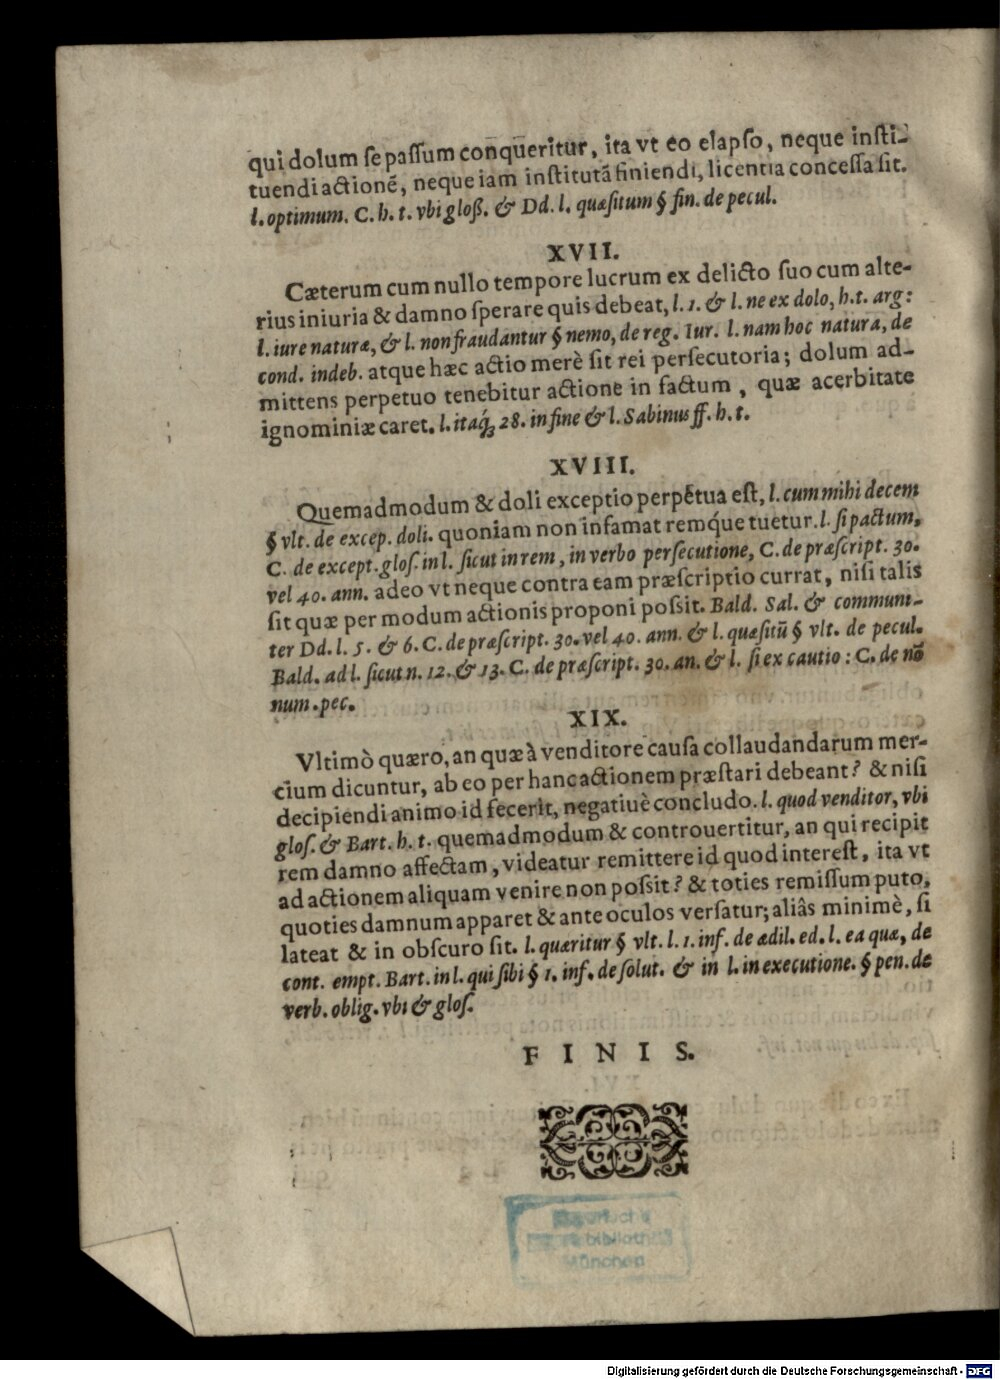 qui dolum se passum conqueritur, ita vt eo elapso, neque insti-
tuendi actionẽ, neque iam institutã finiendi, licentia concessa sit.
l. optimum. C. h. t. vbi gloß. & Dd. l. quæsitum § fin. de pecul.
XVII.
Cæterum cum nullo tempore lucrum ex delicto suo cum alte-
rius iniuria & damno sperare quis debeat, l. 1. & l. ne ex dolo, h.t. arg:
l. iure naturæ, & l. non fraudantur § nemo, de reg. Iur. l. nam hoc natura, de
cond. indeb. atque hæc actio merè sit rei persecutoria; dolum ad-
mittens perpetuo tenebitur actione in factum, quæ acerbitate
ignominiæ caret. l. itaq́; 28. in fine & l. Sabinus ff. h. t.
XVIII.
Quemadmodum & doli exceptio perpetua est, l. cum mihi decem
§ vlt. de excep. doli. quoniam non infamat remq́ue tuetur. l. si pactum,
C. de except. glos. in l. sicut in rem, in verbo persecutione, C. de præscript. 30.
vel 40. ann. adeo vt neque contra eam præscriptio currat, nisi talis
sit quæ per modum actionis proponi possit. Bald. Sal. & communi-
ter Dd. l. 5. & 6. C. de præscript. 30. vel 40. ann. & l. quæsitũ § vlt. de pecul.
Bald. ad l. sicut n. 12. & 13. C. de præscript. 30. an. & l. si ex cautio: C. de nõ
num. pec.
XIX.
Vltimò quæro, an quæ à venditore causa collaudandarum mer-
cium dicuntur, ab eo per hanc actionem præstari debeant? & nisi
decipiendi animo id fecerit, negatiuè concludo. l. quod venditor, vbi
glos. & Bart. h. t. quemadmodum & controuertitur, an qui recipit
rem damno affectam, videatur remittere id quod interest, ita vt
ad actionem aliquam venire non possit? & toties remissum puto,
quoties damnum apparet & ante oculos versatur; aliâs minimè, si
lateat & in obscuro sit. l. quæritur § vlt. l. 1. inf. de ædil. ed. l. ea quæ, de
cont. empt. Bart. in l. qui sibi § 1. inf. de solut. & in l. in executione. § pen. de
verb. oblig. vbi & glos.
FINIS.
München
Digitalisierung gefördert durch die Deutsche Forschungsgemeinschaft - DFG